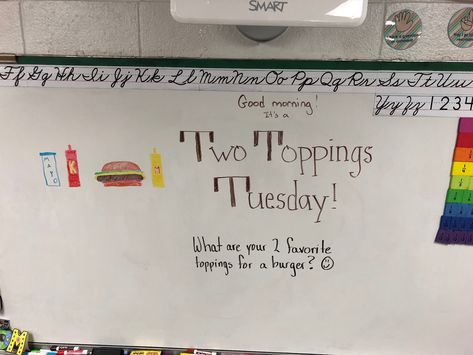 SMART
Ff Gg Hh Ii Jj Kk Ll Mm Nn Oo Pp Qq Rr Ss Tt Uu
Yy Zz 1 2 3 4
Good morning!
It's a
Two Toppings
Tuesday!
MAYO
K
M
What are your 2 favorite
toppings for a burger?
M